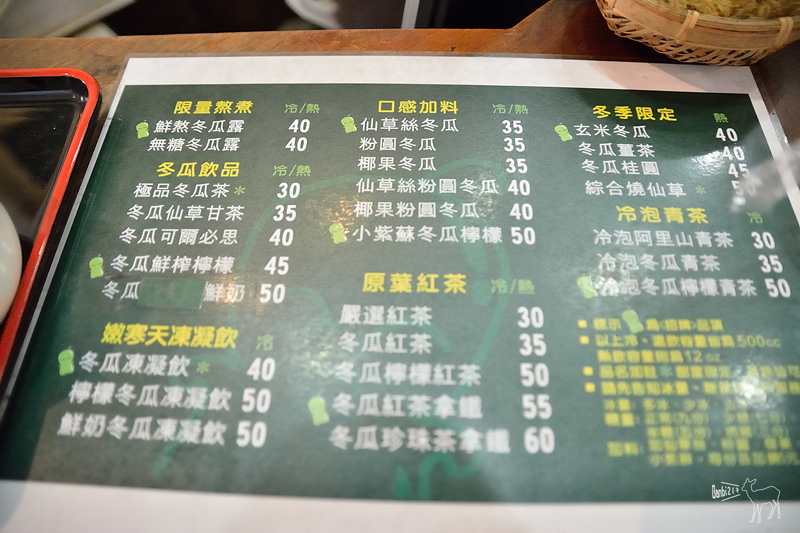 限量熬煮 冷/熱
鮮熬冬瓜露 40
無糖冬瓜露 40
冬瓜飲品 冷/熱
極品冬瓜茶* 30
冬瓜仙草甘茶 35
冬瓜可爾必思 40
冬瓜鮮榨檸檬 45
冬瓜 鮮奶 50
嫩寒天凍凝飲 冷
冬瓜凍凝飲* 40
檸檬冬瓜凍凝飲 50
鮮奶冬瓜凍凝飲 50
口感加料 冷/熱
仙草絲冬瓜 35
粉圓冬瓜 35
椰果冬瓜 35
仙草絲粉圓冬瓜 40
椰果粉圓冬瓜 40
小紫蘇冬瓜檸檬 50
原葉紅茶 冷/熱
嚴選紅茶 30
冬瓜紅茶 35
冬瓜檸檬紅茶 50
冬瓜紅茶拿鐵 55
冬瓜珍珠茶拿鐵 60
冬季限定 熱
玄米冬瓜 40
冬瓜薑茶 40
冬瓜桂圓 45
綜合燒仙草* 50
冷泡青茶 冷
冷泡阿里山青茶 30
冷泡冬瓜青茶 35
冷泡冬瓜檸檬青茶 50
標示 為<招牌>品項
以上冷、溫飲容量皆為500cc
熱飲容量則為12oz
品名加註*
請先告知冰量、
冰量：多冰、少冰
糖量：正常(九分)
加料：